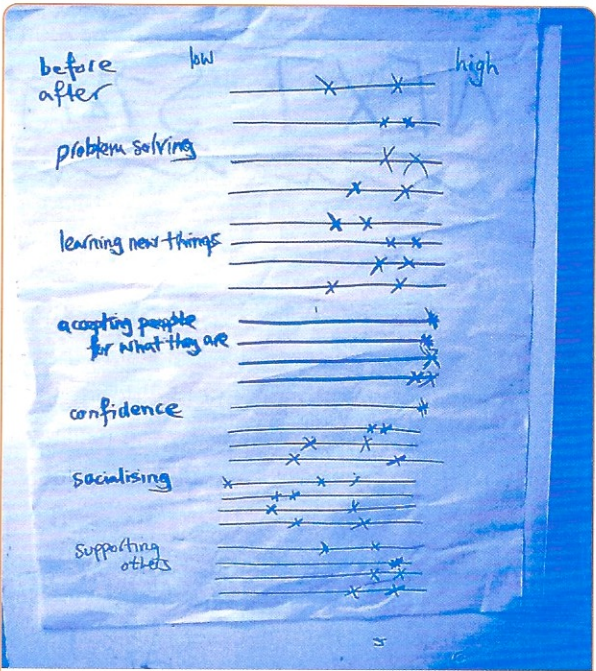 before
low
high
after
problem solving
learning new things
accepting people
for what they are
confidence
socialising
supporting
others